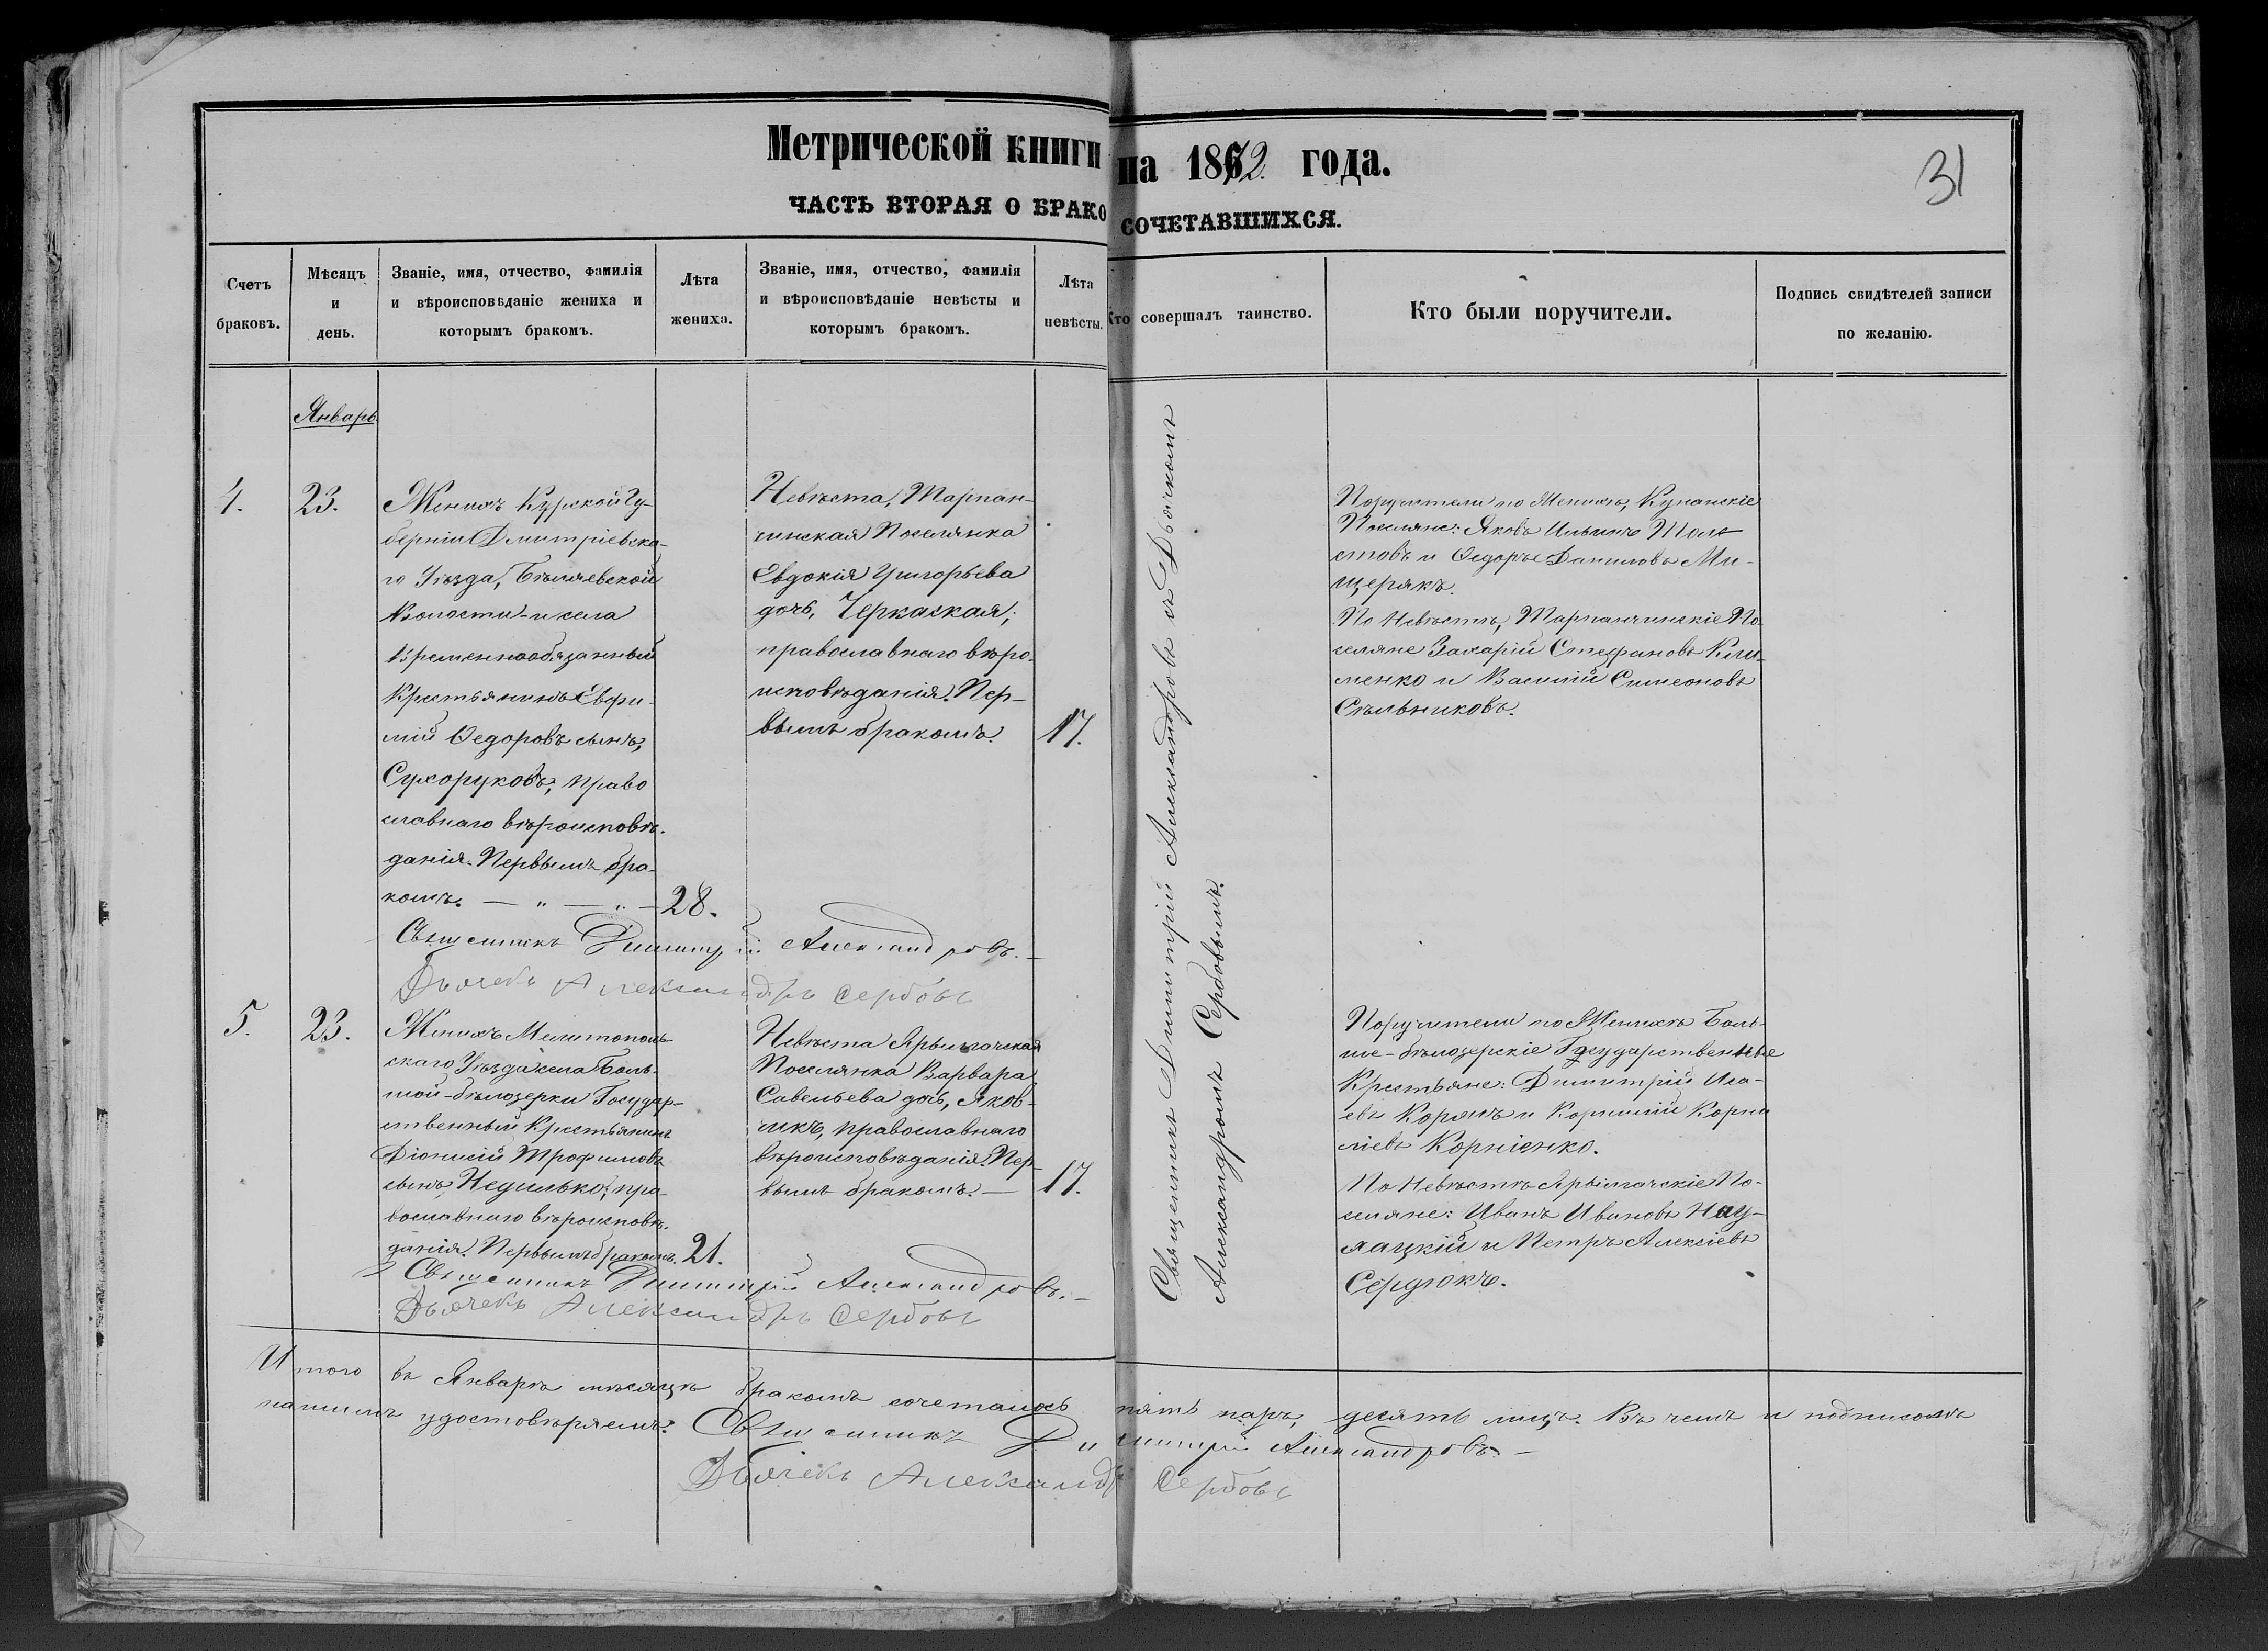 Метрической книги на 1872 года.
31
ЧАСТЬ ВТОРАЯ О БРАКОСОЧЕТАВШИХСЯ.
Счетъ браковъ.
Мѣсяцъ и день.
Званіе, имя, отчество, фамилія и вѣроисповѣданіе жениха и которымъ бракомъ.
Лѣта жениха.
Званіе, имя, отчество, фамилія и вѣроисповѣданіе невѣсты и которымъ бракомъ.
Лѣта невѣсты.
Кто совершалъ таинство.
Кто были поручители.
Подпись свидѣтелей записи по желанію.
Январь
4.
23.
Женихъ Курской Гу-
берніи Дмитріевска-
го Уѣзда, Бѣляевской
Волости и села
Временнообязанный
Крестьянинъ Евфи-
мій Ѳедоровъ сынъ,
Сухоруковъ, право
славнаго вѣроисповѣ-
данія. Первымъ бра-
комъ. — „ — „ —
28.
Невѣста, Тарпан-
чинская Поселянка
Евдокія Григорьева
дочь, Черкаская;
православнаго вѣро-
исповѣданія. Пер-
вымъ бракомъ.
17.
Священникъ Димитрій Александровъ съ Дьячкомъ
Александромъ Сербовымъ.
Поручители по Женихѣ, Куланскіе
Поселяне: Яковъ Ильинъ Толс
стовъ и Ѳедоръ Даниловъ Ми-
щерякъ.
По Невѣстѣ, Тарпанчинскіе По-
селяне Захарій Стефановъ Кли-
менко и Василій Симеоновъ
Стѣльниковъ.
Священникъ Димитрій Александровъ.
Дьячекъ Александръ Сербовъ
5.
23.
Женихъ Мелитополь
скаго Уѣзда села Боль-
шой-бѣлозерки Государ-
ственный Крестьянинъ
Діонисій Трофимовъ
сынъ Недилько, пра-
вославнаго вѣроисповѣ-
данія. Первымъ бракомъ.
21.
Невѣста Ярылгачская
Поселянка Варвара
Савельева дочь, Яков-
чикъ, православнаго
вѣроисповѣданія. Пер-
вымъ бракомъ. —
17.
Поручители по Женихѣ Боль-
ше-бѣлозерскіе Государственные
Крестьяне: Димитрій Иса-
евъ Корякъ и Корнилій Корни
ліевъ Корніенко.
По Невѣстѣ Ярылгачскіе По-
селяне: Иванъ Ивановъ
и Петръ Алексіевъ
Сердюкъ.
Священникъ Димитрій Александровъ.
Дьячекъ Александръ Сербовъ
Итого въ Январѣ мѣсяцѣ бракомъ сочеталось пять паръ, десять лицъ. Въ чемъ и подписомъ
нашимъ удостовѣряемъ: Священникъ Димитрій Александровъ. —
Дьячекъ Александръ Сербовъ